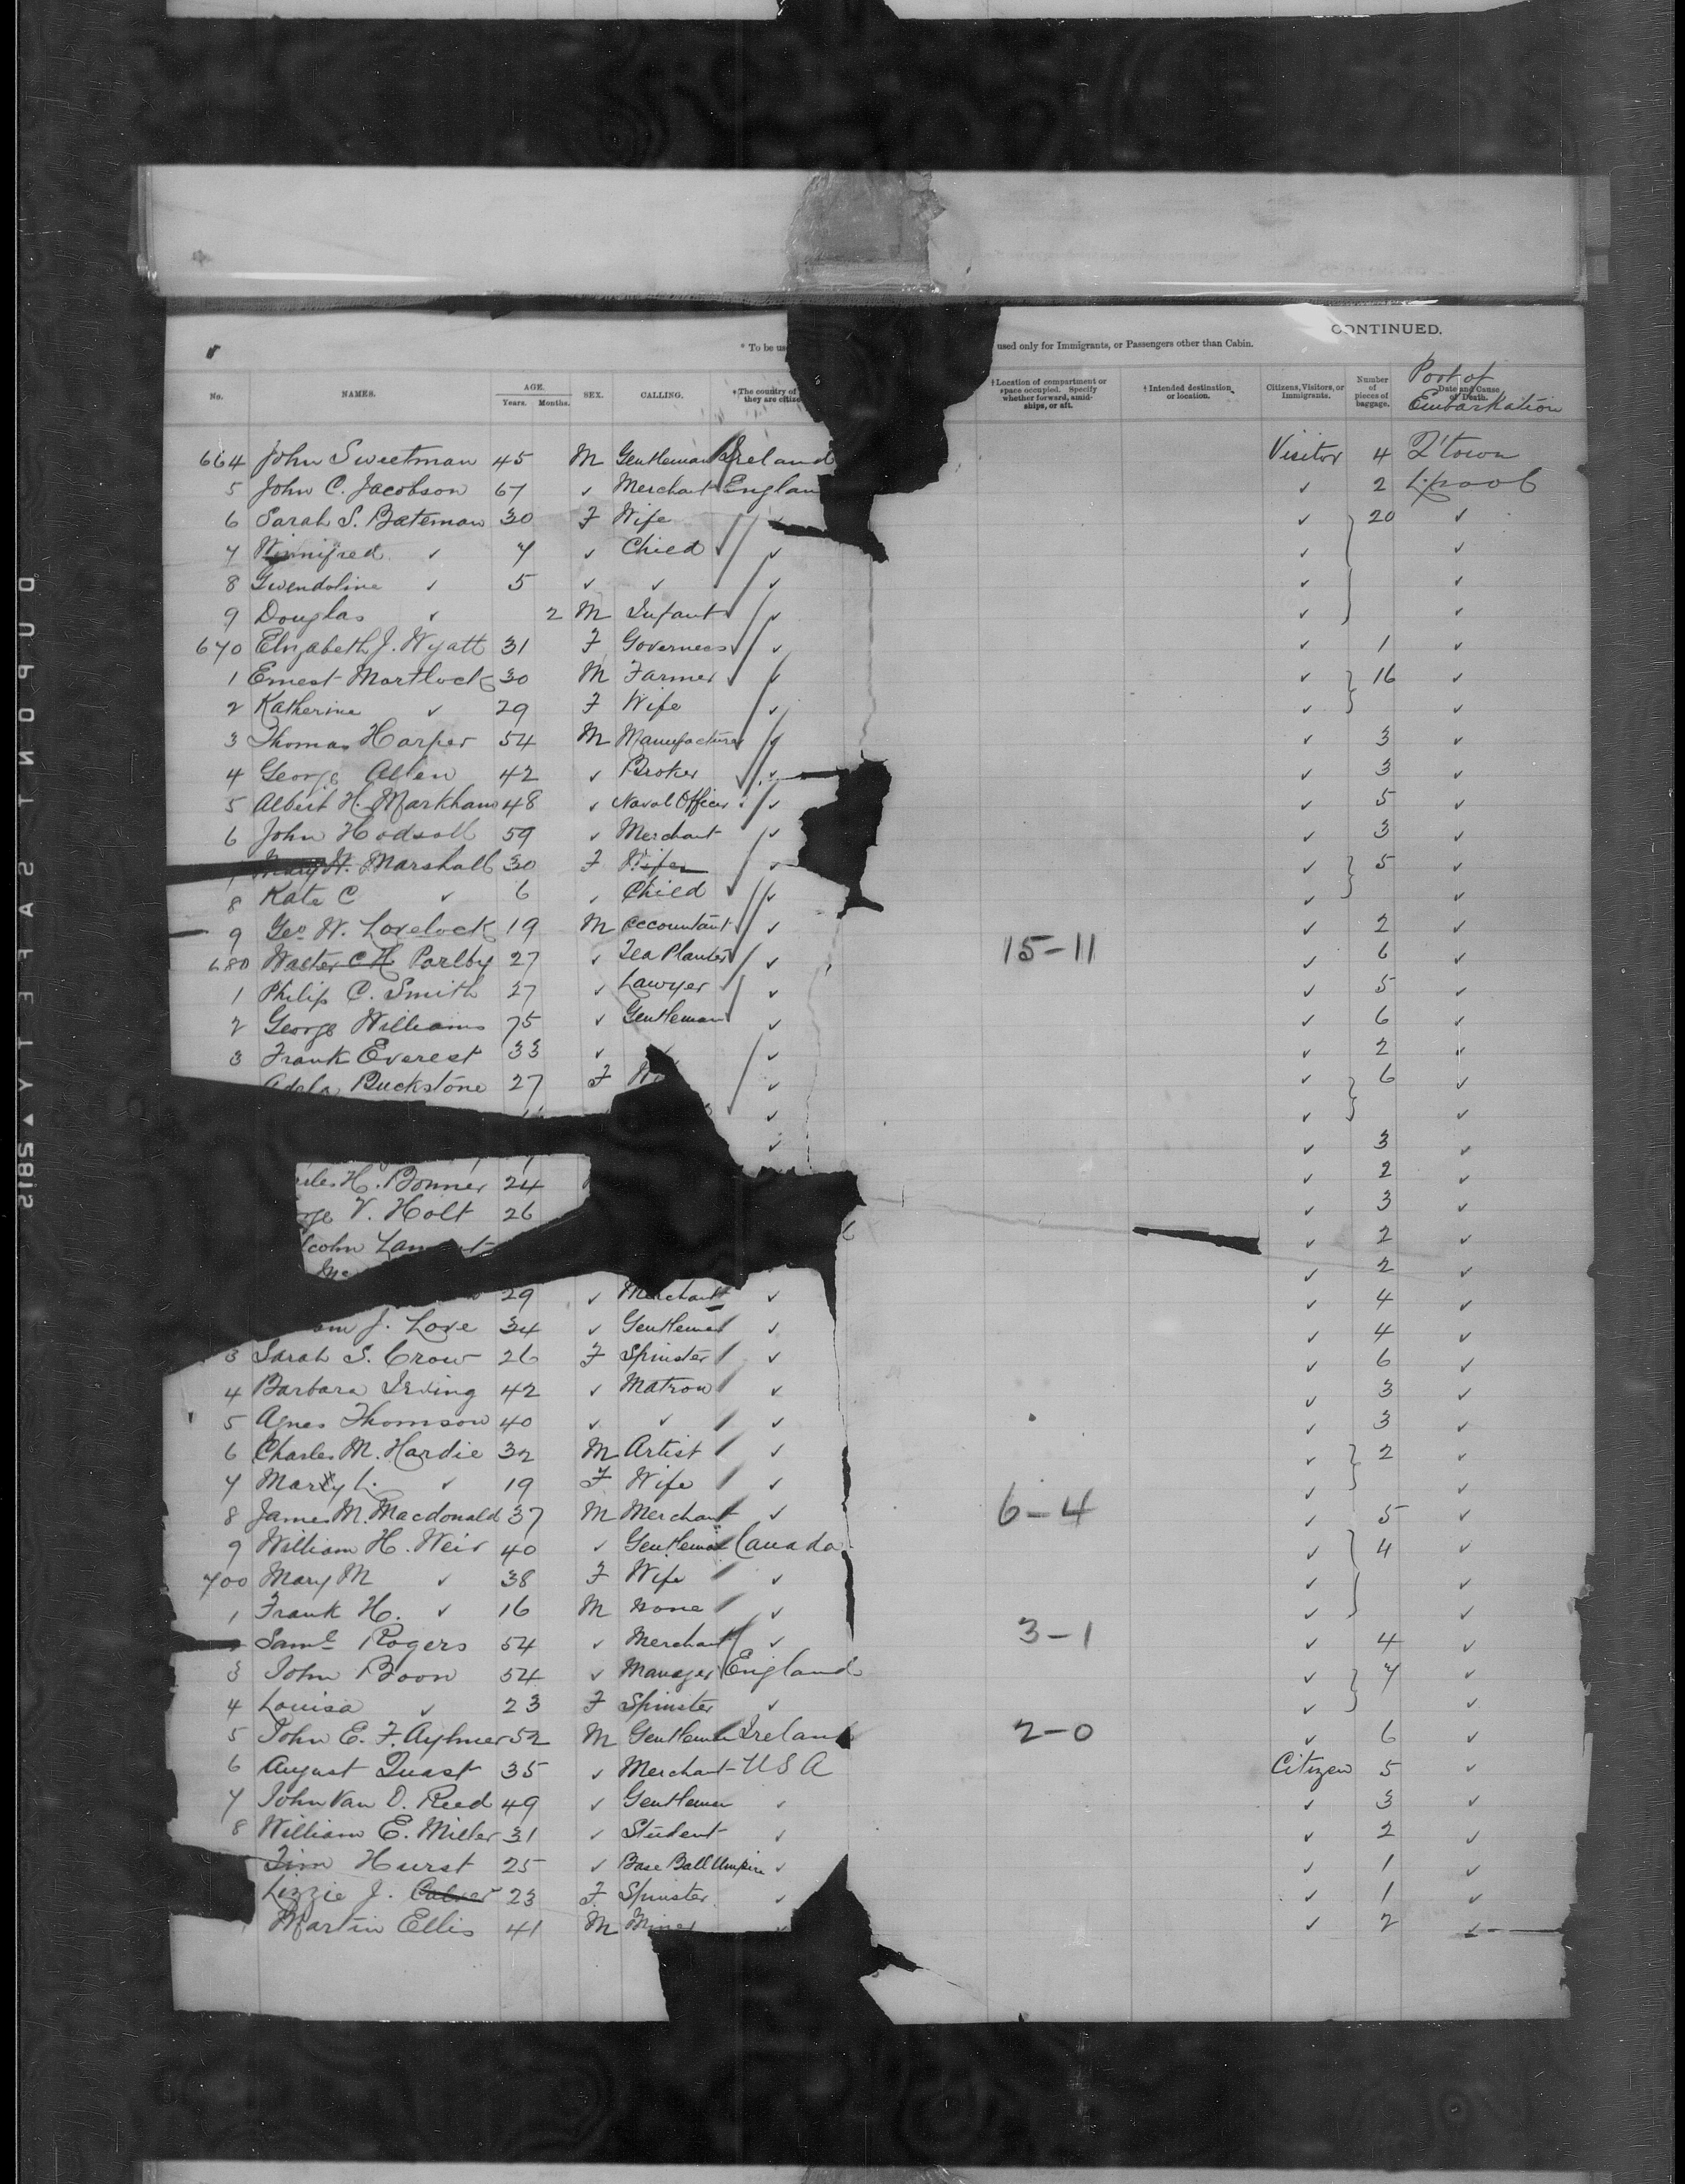 CONTINUED.
* To be us used only for Immigrants, or Passengers other than Cabin.
No. NAMES. AGE. Years. Months. SEX. CALLING. *The country of they are citize †Location of compartment or space occupied. Specify whether forward, amidships, or aft. †Intended destination or location. Citizens, Visitors, or Immigrants. Number of pieces of baggage. Date and Cause of Death. Port of Embarkation
664 John Sweetman 45 M Gentleman Ireland Visitor 4 Q'town
5 John C. Jacobson 67 ✓ Merchant Englan ✓ 2 L.pool
6 Sarah S. Bateman 30 F Wife ✓ ✓ 20 ✓
7 Winnifred ✓ 7 ✓ Child ✓ ✓ ✓
8 Gwendoline ✓ 5 ✓ ✓ ✓ ✓ ✓
9 Douglas ✓ 2 M Infant ✓ ✓ ✓
670 Elizabeth J. Wyatt 31 F Governess ✓ ✓ 1 ✓
1 Ernest Mortlock 30 M Farmer ✓ ✓ 16 ✓
2 Katherine ✓ 29 F Wife ✓ ✓ ✓
3 Thomas Harper 54 M Manufacturer ✓ ✓ 3 ✓
4 George Allen 42 ✓ Broker ✓ ✓ 3 ✓
5 Albert H. Markham 48 ✓ Naval Officer ✓ ✓ 5 ✓
6 John Hodsoll 59 ✓ Merchant ✓ ✓ 3 ✓
Mary W. Marshall 30 F Wife ✓ ✓ 5 ✓
8 Kate C ✓ 6 ✓ Child ✓ ✓ ✓
9 Geo W. Lovelock 19 M Accountant ✓ ✓ 2 ✓
680 Walter C H Parlby 27 ✓ Tea Planter ✓ 15-11 ✓ 6 ✓
1 Philip C. Smith 27 ✓ Lawyer ✓ ✓ 5 ✓
2 George Williams 75 ✓ Gentleman ✓ ✓ 6 ✓
3 Frank Everest 33 ✓ ✓ ✓ 2 ✓
Adela Buckstone 27 F W ✓ ✓ 6 ✓
✓ ✓ ✓
✓ ✓ 3 ✓
rles H. Bonner 24 ✓ 2 ✓
rge V. Holt 26 ✓ 3 ✓
lcolm Lam t ✓ 2 ✓
✓ 2 ✓
29 ✓ Merchant ✓ ✓ 4 ✓
am J. Love 34 ✓ Gentleman ✓ ✓ 4 ✓
3 Sarah S. Crow 26 F Spinster ✓ ✓ 6 ✓
4 Barbara Irving 42 ✓ Matron ✓ ✓ 3 ✓
5 Agnes Thomson 40 ✓ ✓ ✓ ✓ 3 ✓
6 Charles M. Hardie 32 M Artist ✓ ✓ 2 ✓
7 Mary L. ✓ 19 F Wife ✓ ✓ ✓
8 James M. Macdonald 37 M Merchant ✓ 6-4 ✓ 5 ✓
9 William H. Weir 40 ✓ Gentleman Canada ✓ 4 ✓
700 Mary M ✓ 38 F Wife ✓ ✓ ✓
1 Frank H. ✓ 16 M None ✓ ✓ ✓
Saml Rogers 54 ✓ Merchant ✓ 3-1 ✓ 4 ✓
3 John Boon 54 ✓ Manager England ✓ 7 ✓
4 Louisa ✓ 23 F Spinster ✓ ✓ ✓
5 John E. F. Aylmer 52 M Gentleman Ireland 2-0 ✓ 6 ✓
6 August Quast 35 ✓ Merchant USA Citizen 5 ✓
7 John Van D. Reed 49 ✓ Gentleman ✓ ✓ 3 ✓
8 William E. Miller 31 ✓ Student ✓ ✓ 2 ✓
Tim Hurst 25 ✓ Base Ball Umpire ✓ ✓ 1 ✓
Lizzie J. Culver 23 F Spinster ✓ ✓ 1 ✓
Martin Ellis 41 M Miner ✓ ✓ 2 ✓
DUPONT SAFETY ▲ 2815